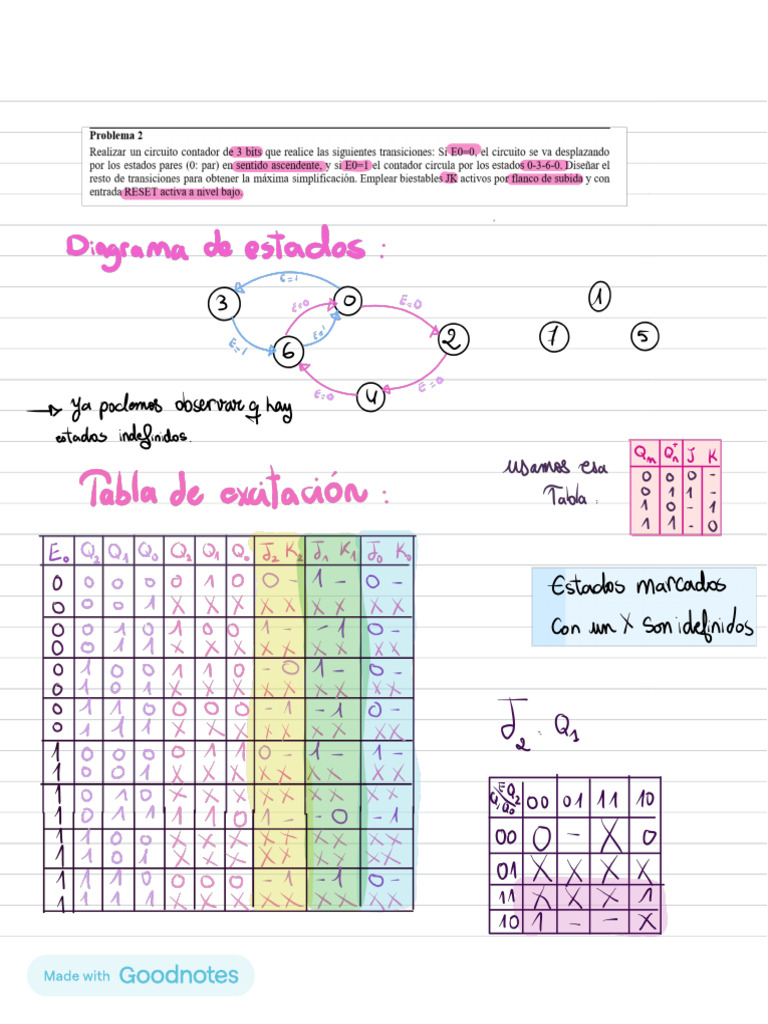 Problema 2
Realizar un circuito contador de 3 bits que realice las siguientes transiciones: Si E0=0, el circuito se va desplazando
por los estados pares (0: par) en sentido ascendente, y si E0=1 el contador circula por los estados 0-3-6-0. Diseñar el
resto de transiciones para obtener la máxima simplificación. Emplear biestables JK activos por flanco de subida y con
entrada RESET activa a nivel bajo.
Diagrama de estados:
E=1
3 0 1
E=0 E=0
E=1 E=1
6 2 7 5
E=0 E=0
4
→ Ya podemos observar q hay
estados indefinidos.
usamos esa
Tabla:
Qn Qn+ J K
0 0 0 -
0 1 1 -
1 0 - 1
1 1 - 0
Tabla de excitación:
E0 Q2 Q1 Q0 Q2 Q1 Q0 J2 K2 J1 K1 J0 K0
0 0 0 0 0 1 0 0 - 1 - 0 -
0 0 0 1 X X X X X X X X X
0 0 1 0 1 0 0 1 - - 1 0 -
0 0 1 1 X X X X X X X X X
0 1 0 0 1 1 0 - 0 1 - 0 -
0 1 0 1 X X X X X X X X X
0 1 1 0 0 0 0 - 1 - 1 0 -
0 1 1 1 X X X X X X X X X
1 0 0 0 0 1 1 0 - 1 - 1 -
1 0 0 1 X X X X X X X X X
1 0 1 0 X X X X X X X X X
1 0 1 1 1 1 0 1 - - 0 - 1
1 1 0 0 X X X X X X X X X
1 1 0 1 X X X X X X X X X
1 1 1 0 0 0 0 - 1 - 1 0 -
1 1 1 1 X X X X X X X X X
Estados marcados
con un X son idefinidos
J2 : Q1
E Q2
Q1 Q0 00 01 11 10
00 0 - X 0
01 X X X X
11 X X X 1
10 1 - - X
Made with Goodnotes